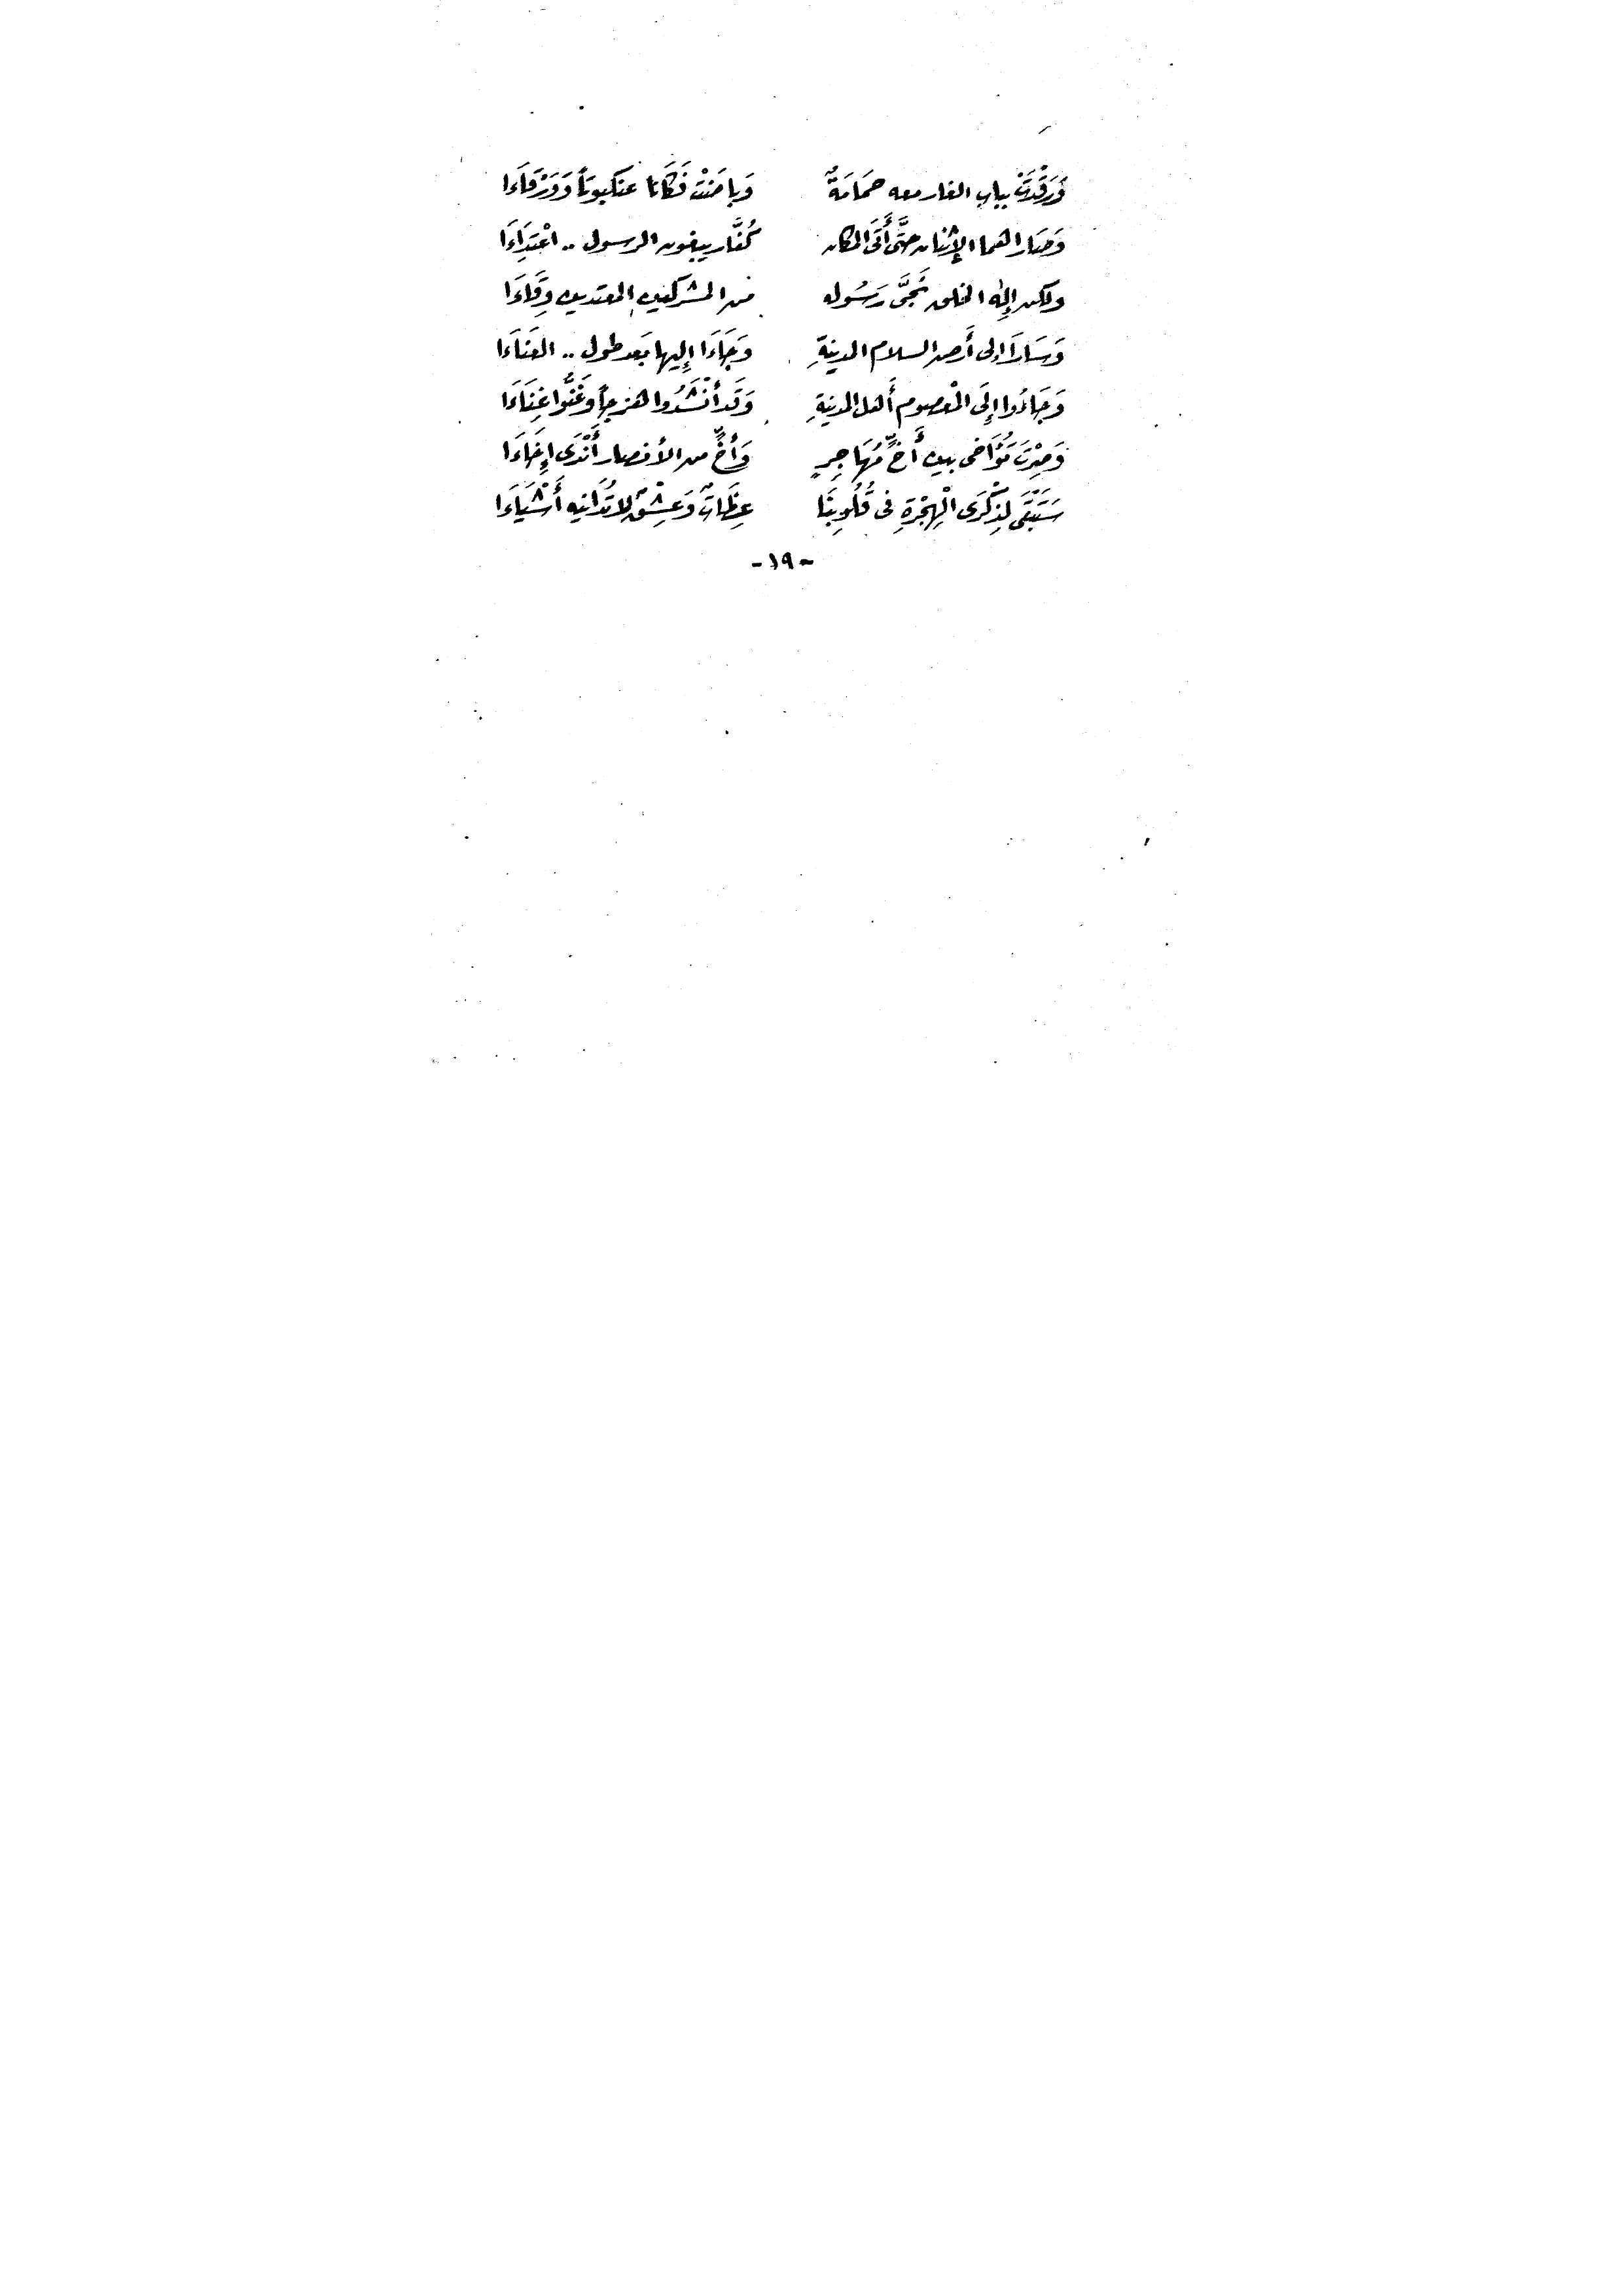 وَرَقَدَتْ بباب الغار معه حمَامَةٌ وَباضَتْ فَكَانا عنكبوتاً وَوَرْقَاءَا
وَصَارا هما الإثنان حتَّى أَتَى المكان كُفَّار يبغون الرسول .. اعْتِدَاءَا
ولكن إله الخلق نَجَّى رَسُوله من المشركين المعتدين وِقَاءَا
وَسَارَا إلى أَرض السلام المدينةِ وَجَاءَا إليها بَعد طول .. العَنَاءَا
وَجَاءُوا إِلَى الْمعصوم أَهل المدينةِ وَقَد أَنْشَدُوا هزجاً وَغَنُّوا غِنَاءَا
وَصِرْتَ تُؤَاخى بين أَخٍّ مُهَاجِرٍ وَأَخٍّ من الأنصار أَنْدَى إِخَاءَا
سَتَبْقَى لِذِكْرَى الْهِجْرَةِ فى قُلُوبِنَا عِظَاتٌ وَعِشْقٌ لا تُدَانيه أَشْيَاءَا
- ١٩ -